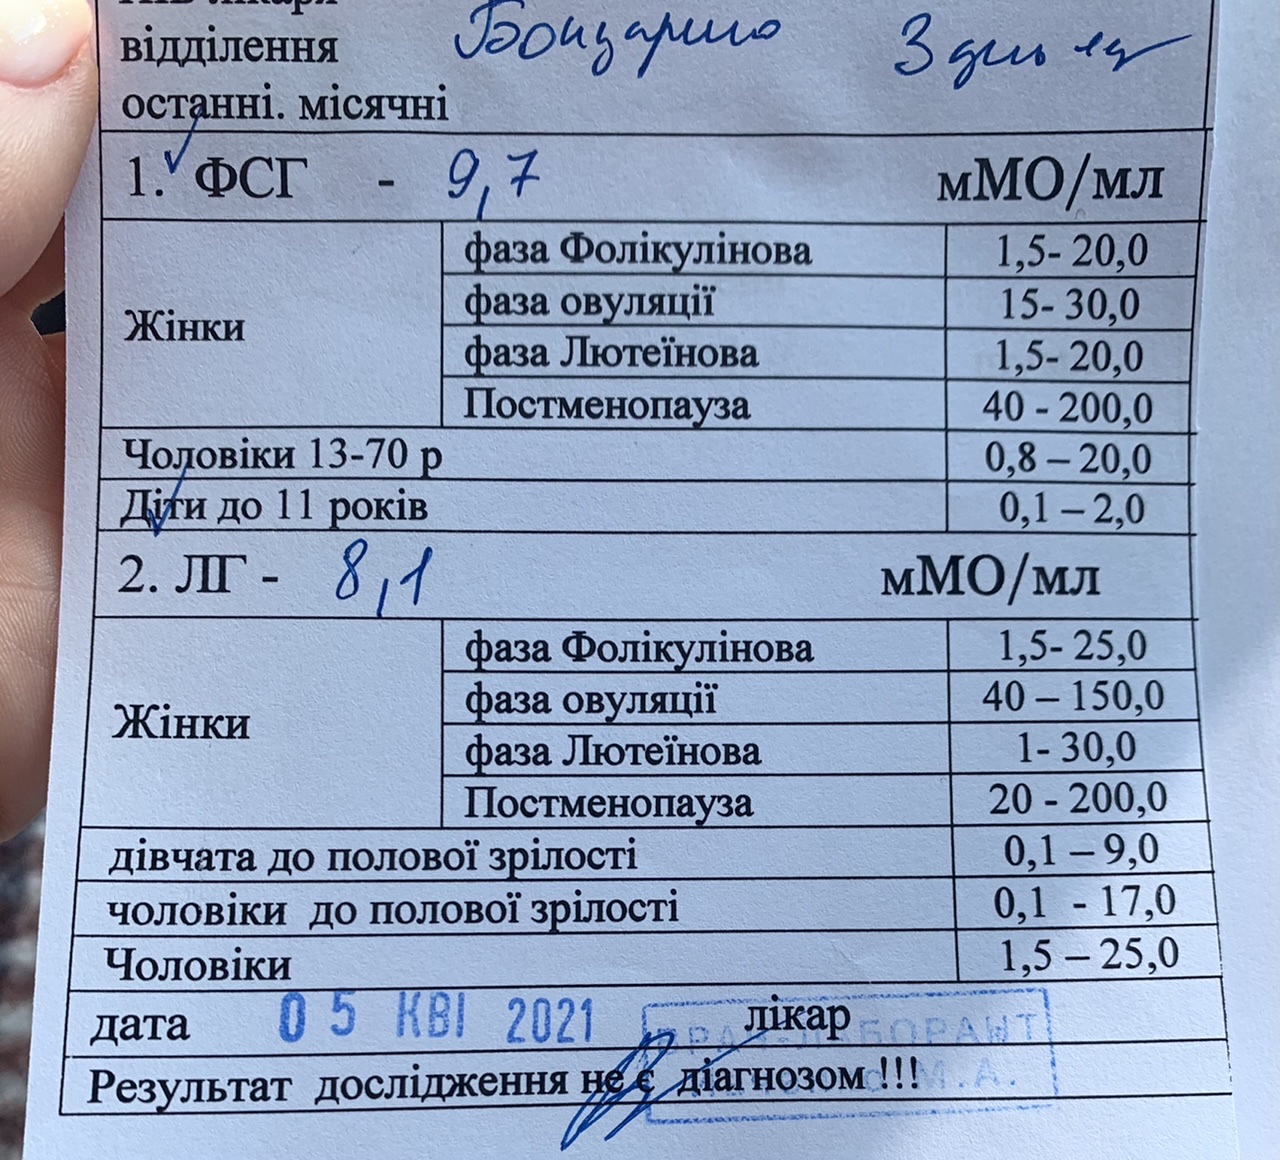 відділення
останні. місячні
3 день
1. ФСГ - 9,7 мМО/мл
Жінки
фаза Фолікулінова 1,5- 20,0
фаза овуляції 15- 30,0
фаза Лютеїнова 1,5- 20,0
Постменопауза 40 - 200,0
Чоловіки 13-70 р 0,8 – 20,0
Діти до 11 років 0,1 – 2,0
2. ЛГ - 8,1 мМО/мл
Жінки
фаза Фолікулінова 1,5- 25,0
фаза овуляції 40 – 150,0
фаза Лютеїнова 1- 30,0
Постменопауза 20 - 200,0
дівчата до полової зрілості 0,1 – 9,0
чоловіки до полової зрілості 0,1 - 17,0
Чоловіки 1,5 – 25,0
дата 05 КВІ 2021 лікар
Результат дослідження не є діагнозом !!!
М.А.